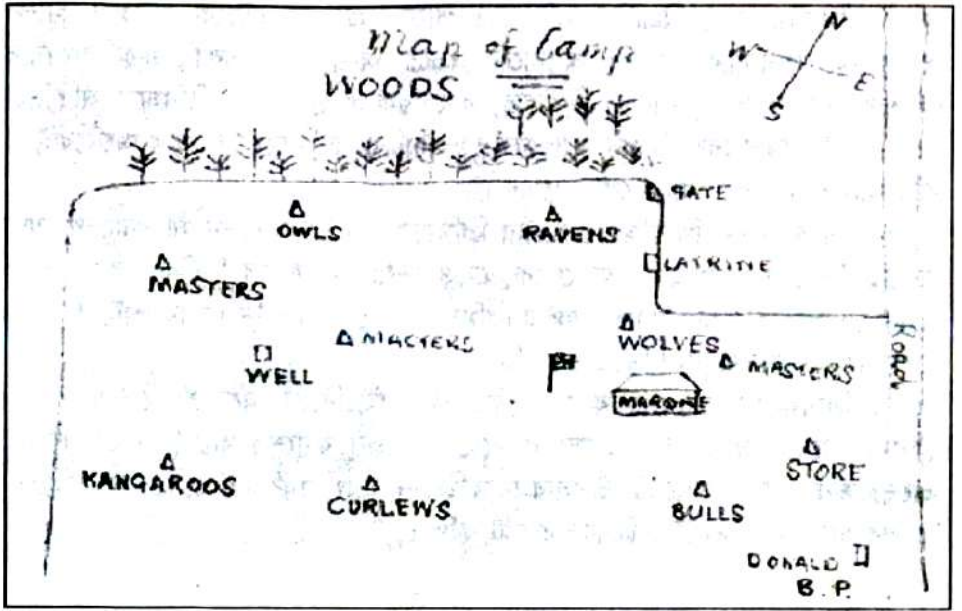 Map of Camp
WOODS
N
W
E
S
GATE
OWLS
RAVENS
LATRINE
MASTERS
MASTERS
WOLVES
MASTERS
WELL
MARQUE
ROAD
KANGAROOS
CURLEWS
BULLS
STORE
DONALD
B.P.